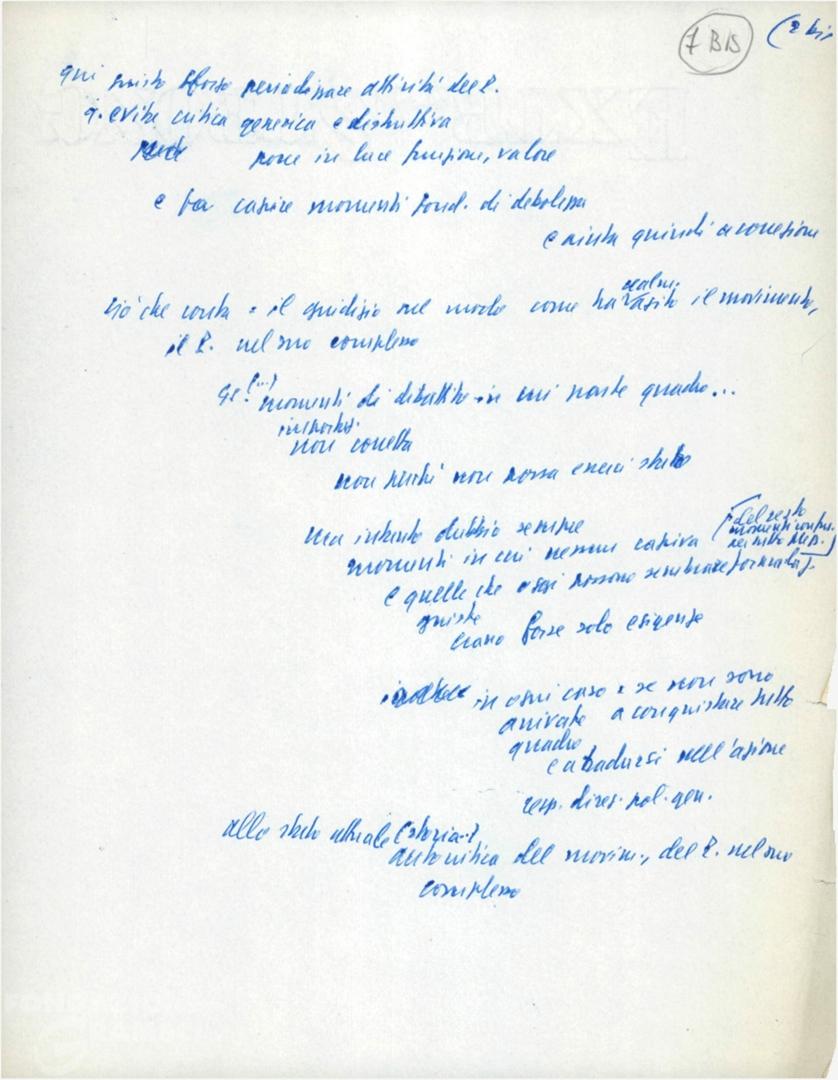 7 BIS
(2 bis
qui giusto sforzo periodizzare attività del P.
q. evita critica generica e distruttiva
pone in luce funzione, valore
e fa capire momenti fond. di debolezza
e aiuta quindi a correzione
ciò che conta = il giudizio nel modo come ha realm. agito il movimento,
il P. nel suo complesso
(...)
momenti di dibattito in cui parte quadro...
non corretta
non perché non possa esserci stato
ma intanto dubbio sempre
momenti in cui nessuno capiva (del resto
momenti
e quelle che oggi possono sembrare formulaz.
giuste
erano forse solo esigenze
in ogni caso = se non sono
arrivate a conquistare tutto
quadro
e a tradursi nell'azione
resp. direz. pol. gen.
allo stato attuale (storia?)
autocritica del movim., del P. nel suo
complesso